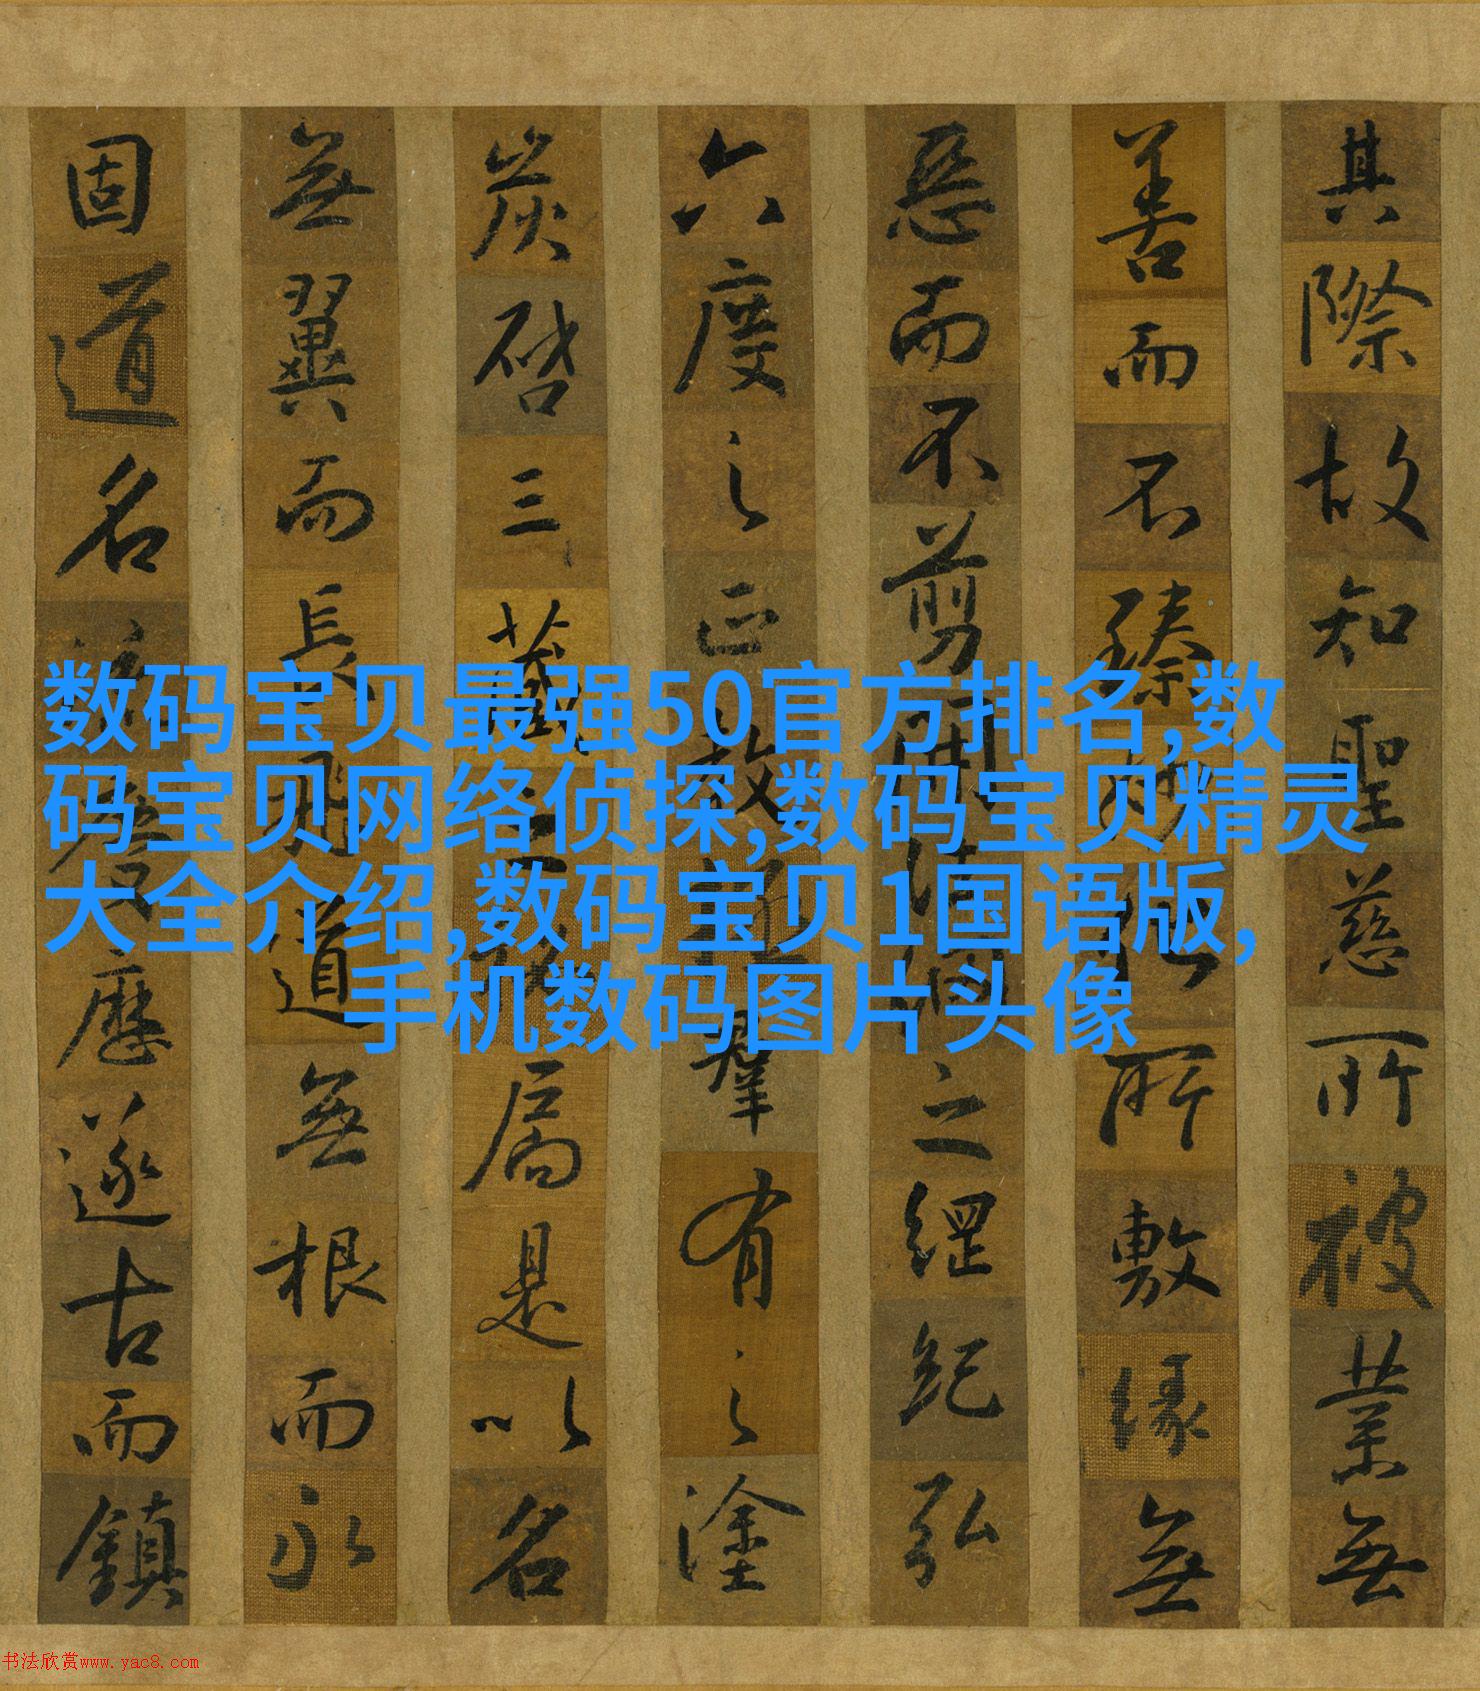 其際故知聖慈所被業無
善而不臻妙化所敷緣無
惡而不剪開法網之綱紀弘
六度之正教拯羣有之塗
炭啓三藏之秘扃是以名
無翼而長飛道無根而永
固道名流慶歷遂古而鎮
数码宝贝最强50官方排名,数
码宝贝网络侦探,数码宝贝精灵
大全介绍,数码宝贝1国语版,
手机数码图片头像
书法欣赏www.yac8.com